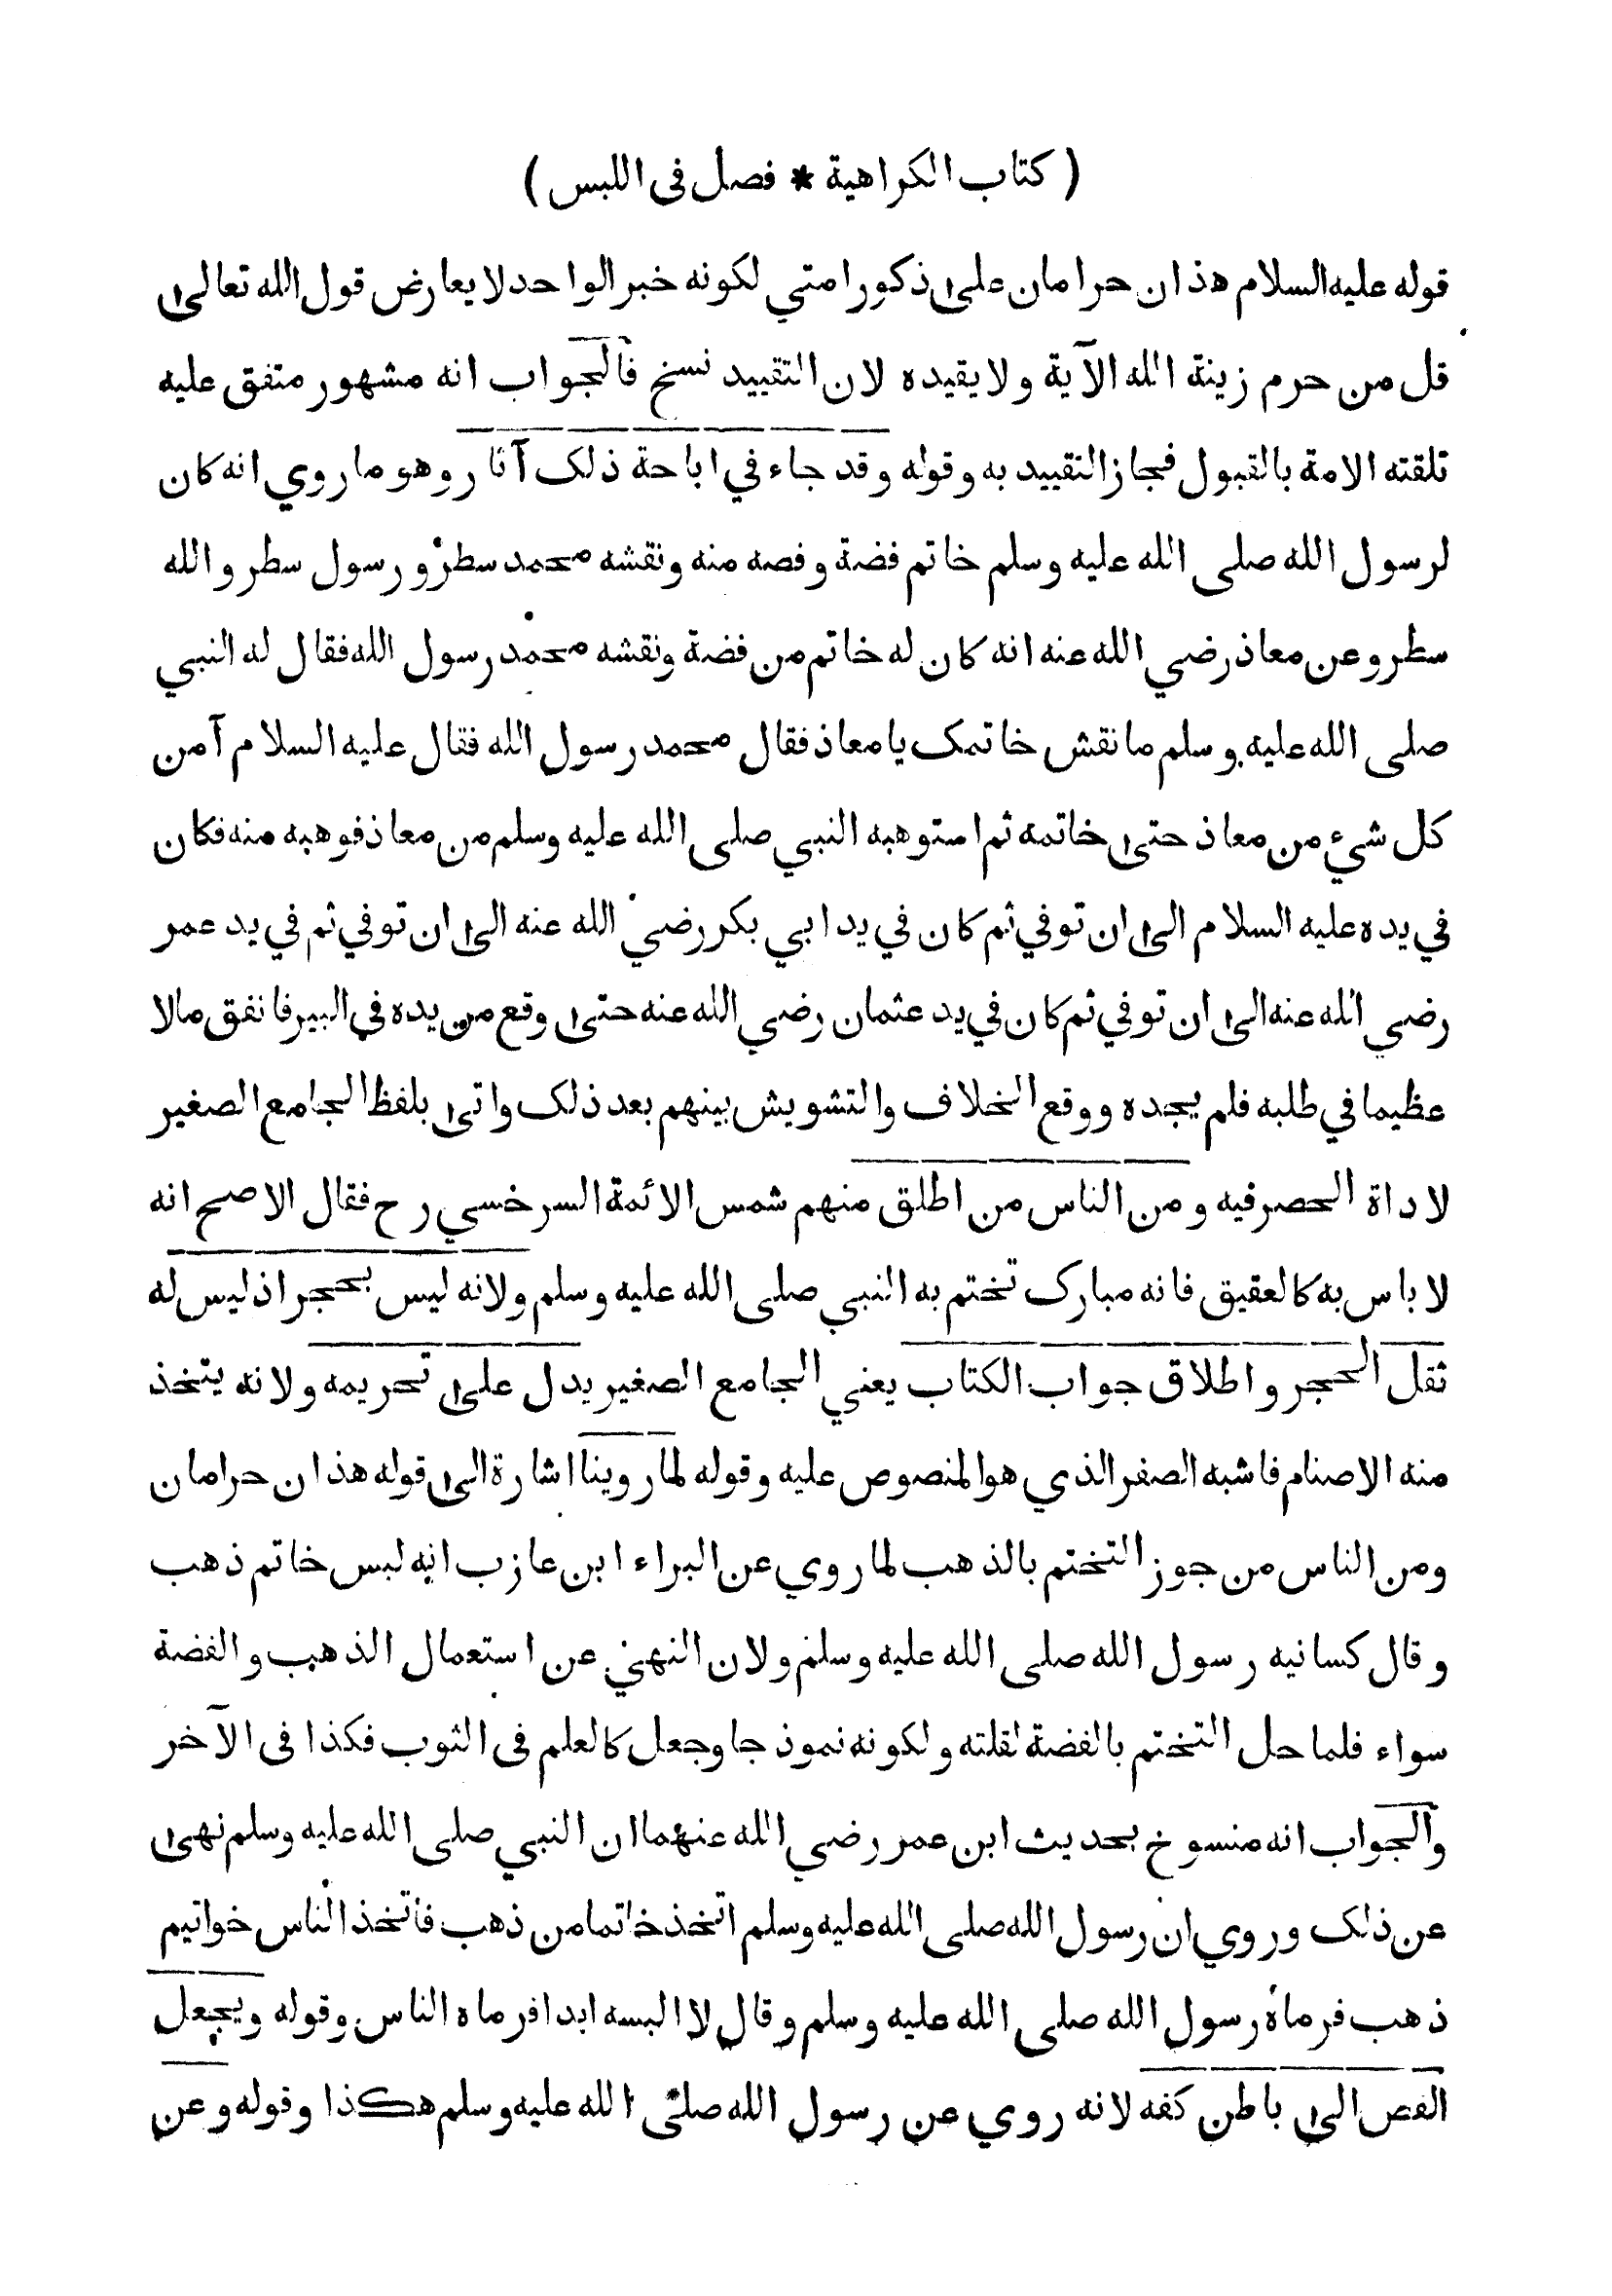 ( كتاب الكراهية * فصل فى اللبس )
قوله عليه السلام هذان حرامان على ذكور امتي لكونه خبر الواحد لا يعارض قول الله تعالى
قل من حرم زينة الله الآية ولا يقيده لان التقييد نسخ فالجواب انه مشهور متفق عليه
تلقته الامة بالقبول فجاز التقييد به وقوله وقد جاء في اباحة ذلك آثار وهو ما روي انه كان
لرسول الله صلى الله عليه وسلم خاتم فضة وفصه منه ونقشه محمد سطر ورسول سطر والله
سطر وعن معاذ رضي الله عنه انه كان له خاتم من فضة ونقشه محمد رسول الله فقال له النبي
صلى الله عليه وسلم ما نقش خاتمك يا معاذ فقال محمد رسول الله فقال عليه السلام آمن
كل شيء من معاذ حتى خاتمه ثم استوهبه النبي صلى الله عليه وسلم من معاذ فوهبه منه فكان
في يده عليه السلام الى ان توفي ثم كان في يد ابي بكر رضي الله عنه الى ان توفي ثم في يد عمر
رضي الله عنه الى ان توفي ثم كان في يد عثمان رضي الله عنه حتى وقع من يده في البير فانفق مالا
عظيما في طلبه فلم يجده ووقع الخلاف والتشويش بينهم بعد ذلك واتى بلفظ الجامع الصغير
لاداة الحصر فيه ومن الناس من اطلق منهم شمس الائمة السرخسي رح فقال الاصح انه
لا باس به كالعقيق فانه مبارك تختم به النبي صلى الله عليه وسلم ولانه ليس بحجر اذ ليس له
ثقل الحجر واطلاق جواب الكتاب يعني الجامع الصغير يدل على تحريمه ولانه يتخذ
منه الاصنام فاشبه الصفر الذي هو المنصوص عليه وقوله لما روينا اشارة الى قوله هذان حرامان
ومن الناس من جوز التختم بالذهب لما روي عن البراء ابن عازب انه لبس خاتم ذهب
وقال كسانيه رسول الله صلى الله عليه وسلم ولان النهي عن استعمال الذهب والفضة
سواء فلما حل التختم بالفضة لقلته ولكونه نموذجا وجعل كالعلم فى الثوب فكذا فى الآخر
والجواب انه منسوخ بحديث ابن عمر رضي الله عنهما ان النبي صلى الله عليه وسلم نهى
عن ذلك وروي ان رسول الله صلى الله عليه وسلم اتخذ خاتما من ذهب فاتخذ الناس خواتيم
ذهب فرماه رسول الله صلى الله عليه وسلم وقال لا البسه ابدا فرماه الناس وقوله ويجعل
الفص الى باطن كفه لانه روي عن رسول الله صلى الله عليه وسلم هكذا وقوله وعن